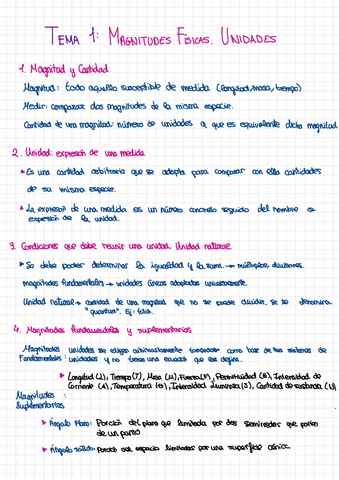 TEMA 1: MAGNITUDES FÍSICAS. UNIDADES
1. Magnitud y Cantidad
Magnitud: todo aquello susceptible de medida (longitud, masa, tiempo)
Medir: comparar dos magnitudes de la misma especie.
Cantidad de una magnitud: número de unidades a que es equivalente dicha magnitud
2. Unidad: expresión de una medida
Es una cantidad arbitraria que se adopta para comparar con ella cantidades
de su misma especie.
La expresión de una medida es un número concreto seguido del nombre o
expresión de la unidad.
3. Condiciones que debe reunir una unidad. Unidad natural
So debe poder determinar la igualdad y la suma → múltiplos divisores.
magnitudes fundamentales → unidades únicas adoptadas universalmente.
Unidad natural → cantidad de una magnitud que no se puede dividir. se le denomina
"quantum". Ej: fotón.
4. Magnitudes fundamentales y suplementarias
Magnitudes Fundamentales: unidades se eligen arbitrariamente tomándose como base de los sistemas de
unidades y no tienen una ecuación que las defina.
Longitud (L), Tiempo (T), Masa (M), Fuerza (F), Permitividad (E), Intensidad de
Corriente (A), Temperatura (θ), Intensidad luminosa (J), Cantidad de sustancia (N)
Magnitudes
Suplementarias
Ángulo Plano: Porción del plano que limitada por dos semirrectas que parten
de un punto
Ángulo sólido: porción del espacio limitadas por una superficie cónica.